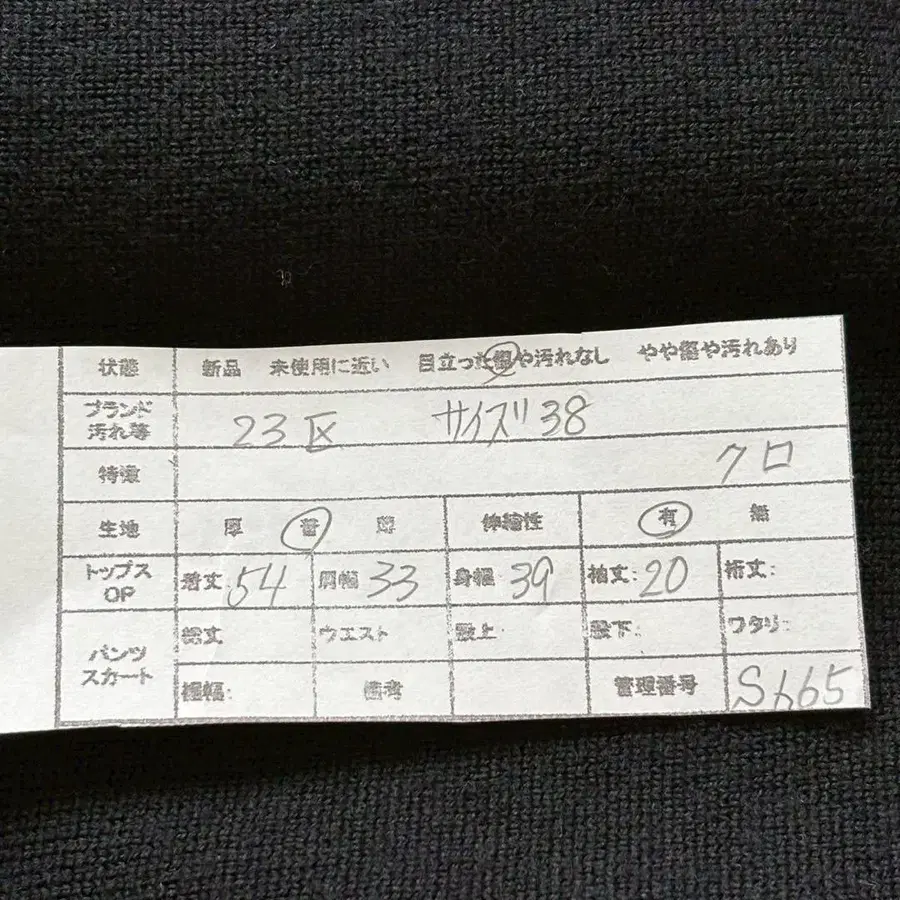 状態 新品 未使用に近い 目立った傷や汚れなし やや傷や汚れあり
ブランド 汚れ等 23区 サイズ 38
特徴 クロ
生地 厚 普 薄 伸縮性 有 無
トップス OP 着丈:54 肩幅 33 身幅:39 袖丈:20 裄丈:
パンツ スカート 総丈 ウエスト 股上: 股下: ワタリ:
裾幅: 備考 管理番号 S665